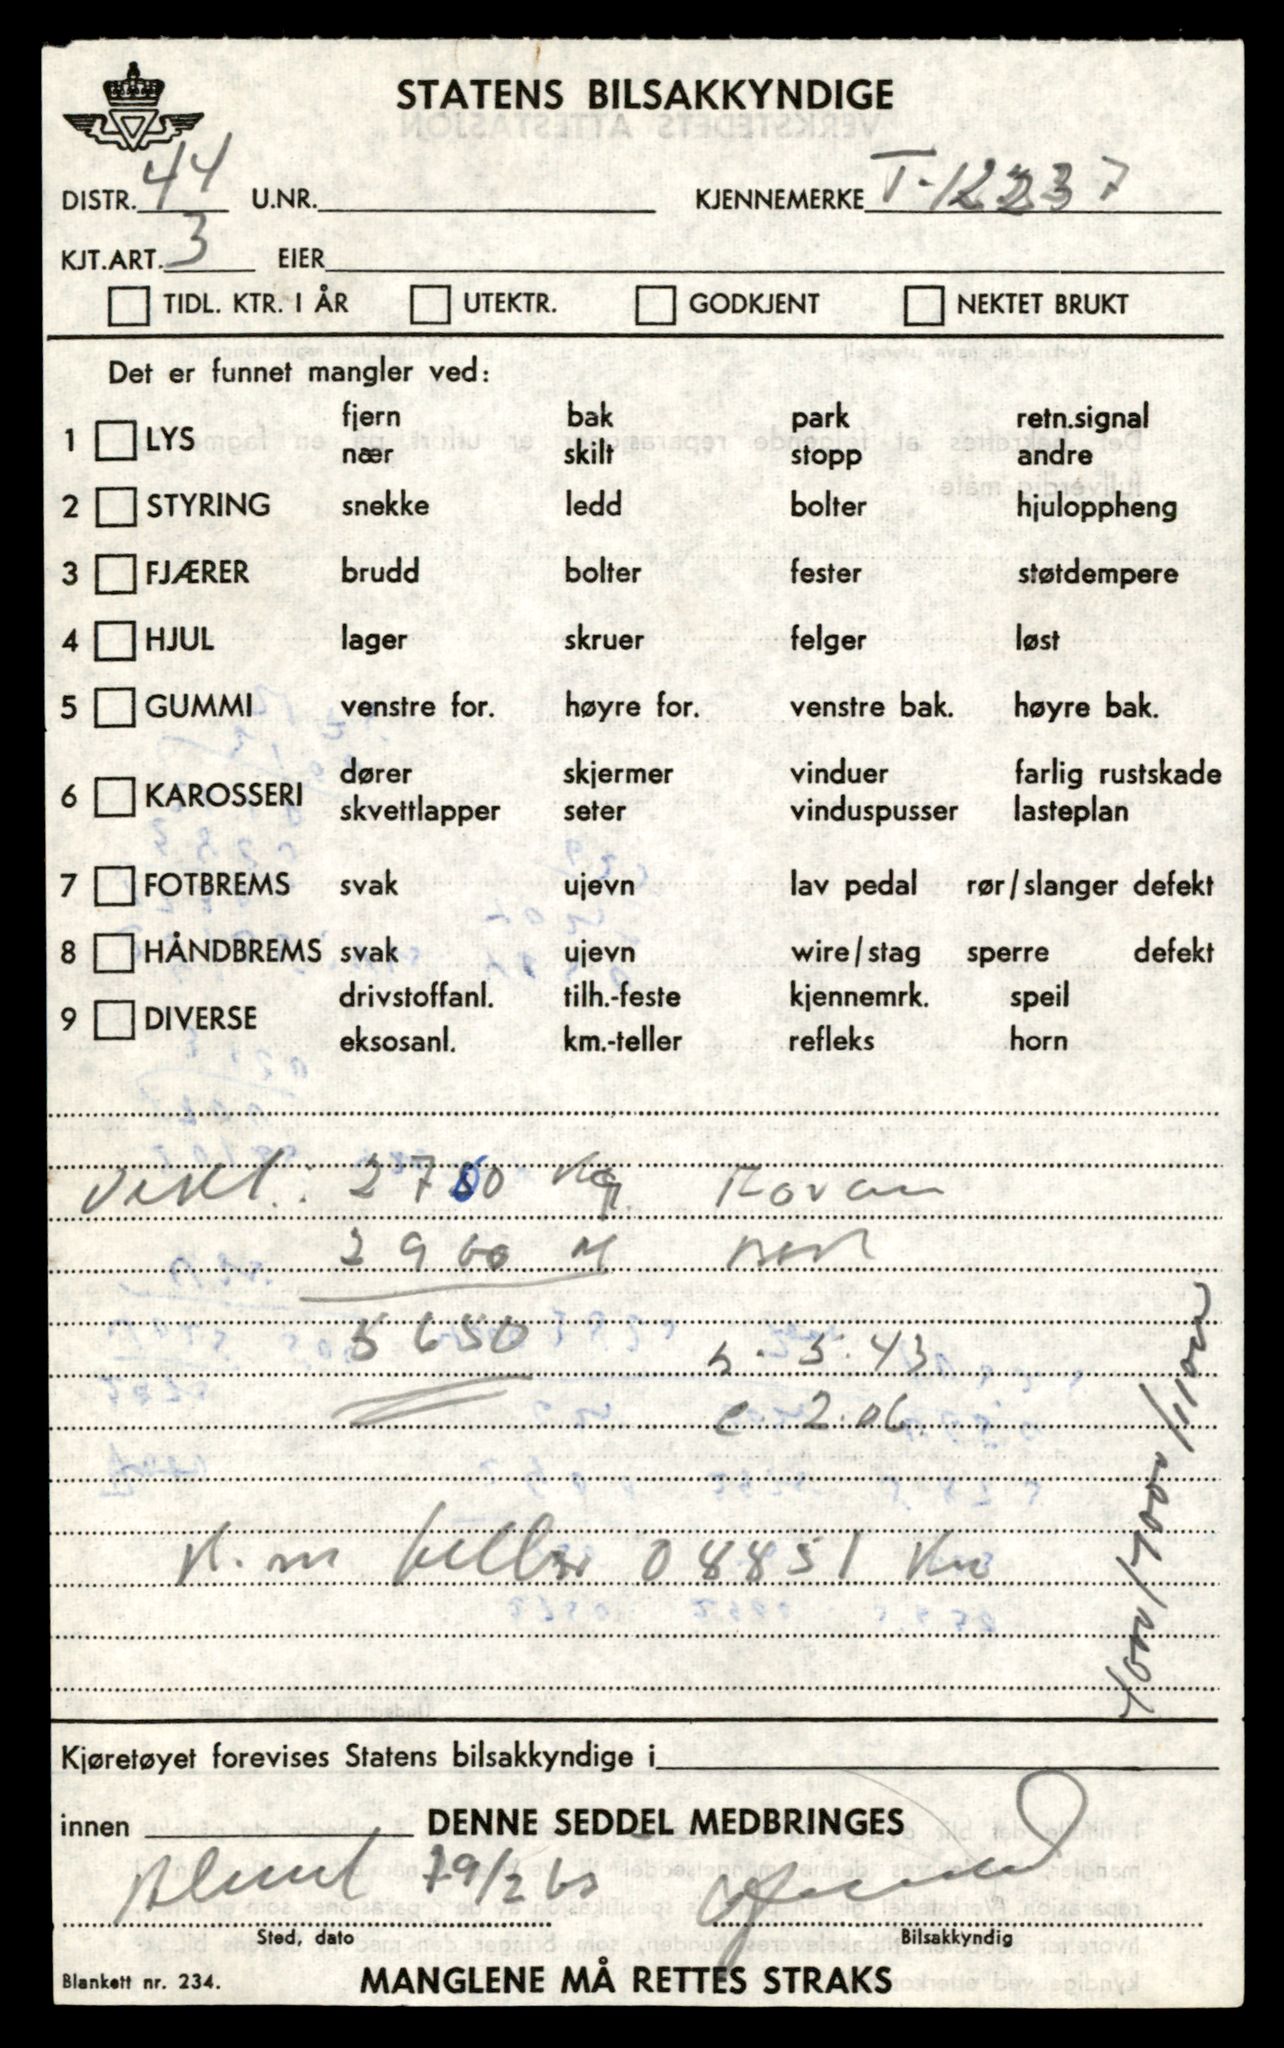 STATENS BILSAKKYNDIGE
DISTR. 44 U.NR. KJENNEMERKE T-12237
KJT.ART. 3 EIER
TIDL. KTR. I ÅR UTEKTR. GODKJENT NEKTET BRUKT
Det er funnet mangler ved:
1 LYS fjern bak park retn.signal
nær skilt stopp andre
2 STYRING snekke ledd bolter hjuloppheng
3 FJÆRER brudd bolter fester støtdempere
4 HJUL lager skruer felger løst
5 GUMMI venstre for. høyre for. venstre bak. høyre bak.
6 KAROSSERI dører skjermer vinduer farlig rustskade
skvettlapper seter vinduspusser lasteplan
7 FOTBREMS svak ujevn lav pedal rør/slanger defekt
8 HÅNDBREMS svak ujevn wire/stag sperre defekt
9 DIVERSE drivstoffanl. tilh.-feste kjennemrk. speil
eksosanl. km.-teller refleks horn
Vekt: Kg. Foran
5650 5.43
2.06
K.m teller 08851 Km
Kjøretøyet forevises Statens bilsakkyndige i
innen DENNE SEDDEL MEDBRINGES
Sted, dato Bilsakkyndig
Blankett nr. 234. MANGLENE MÅ RETTES STRAKS